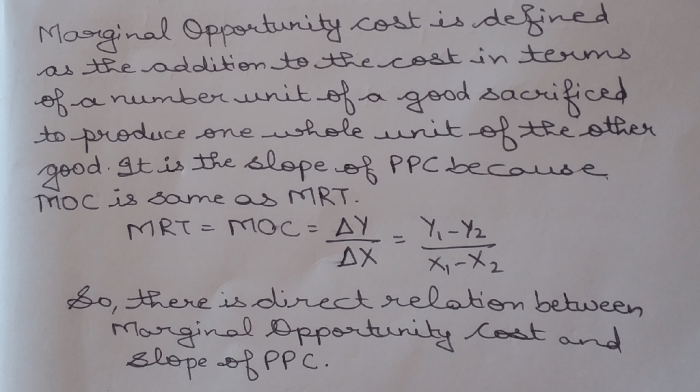 Marginal Opportunity cost is defined
as the addition to the cost in terms
of a number unit of a good sacrificed
to produce one whole unit of the other
good. It is the slope of PPC because
MOC is same as MRT.
MRT = MOC = ΔY/ΔX = Y₁-Y₂/X₁-X₂
So, there is direct relation between
Marginal Opportunity Cost and
slope of PPC.